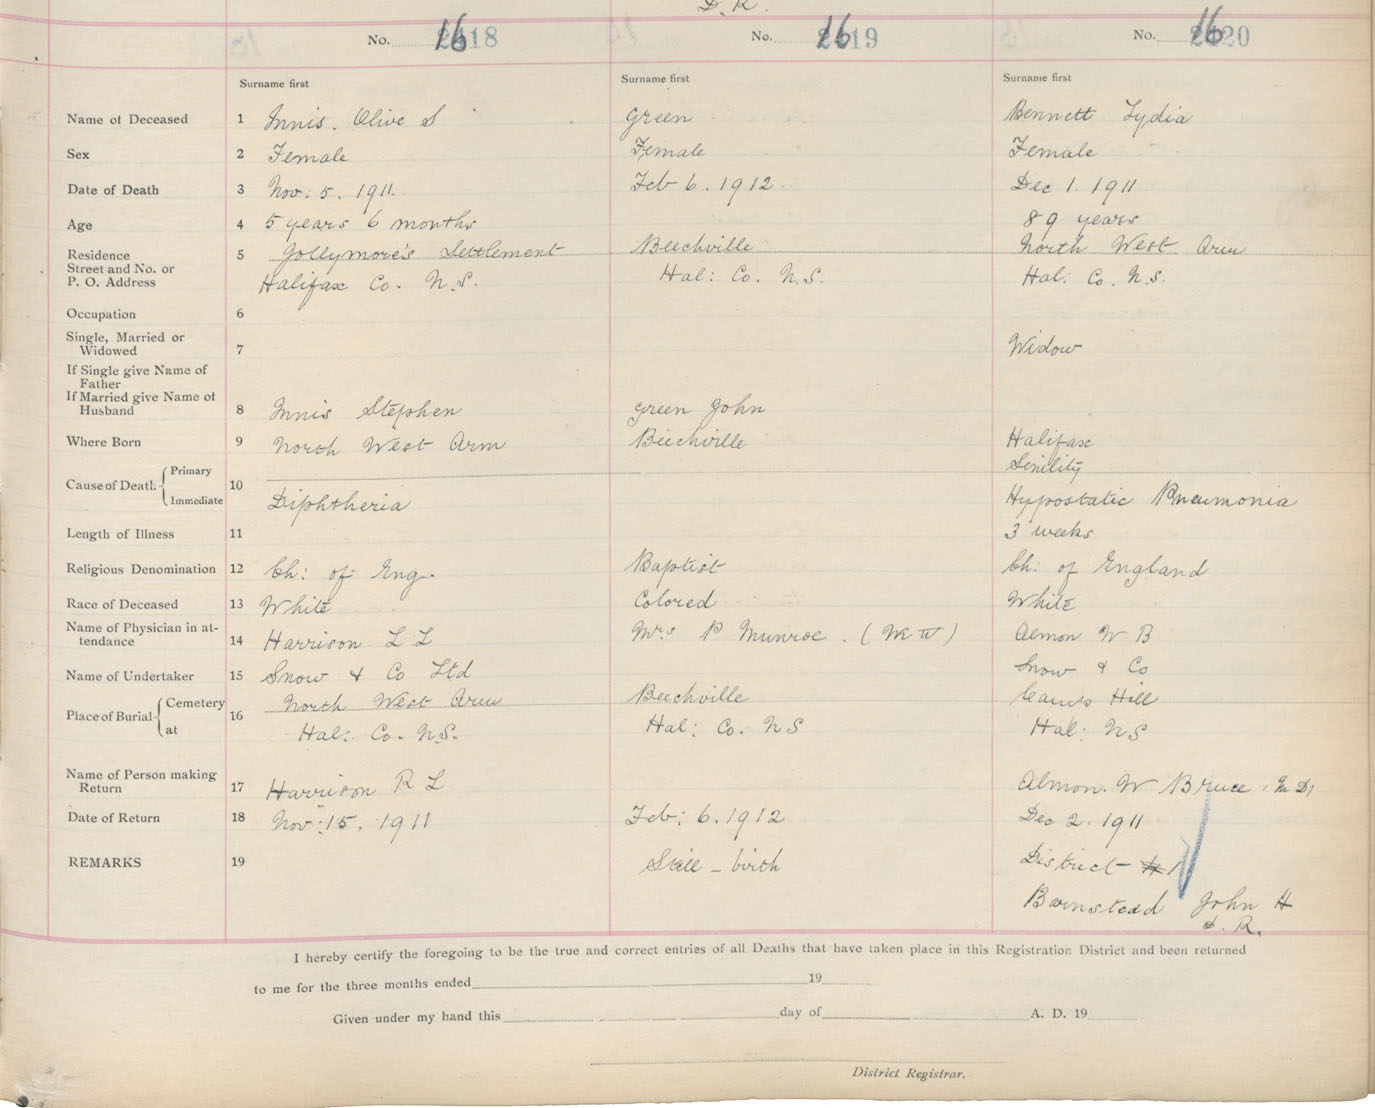 D. R.
No. 16 2418 No. 16 2419 No. 16 2420
Surname first Surname first Surname first
Name of Deceased 1 Innis. Olive S Green Bennett Lydia
Sex 2 Female Female Female
Date of Death 3 Nov: 5. 1911. Feb 6. 1912 Dec 1. 1911
Age 4 5 years 6 months 89 years
Residence 5 Jollymore's Settlement Beechville North West Arm
Street and No. or
P. O. Address Halifax Co. N.S. Hal: Co. N.S. Hal: Co. N.S.
Occupation 6
Single, Married or
Widowed 7 Widow
If Single give Name of
Father
If Married give Name of
Husband 8 Innis Stephen Green John
Where Born 9 North West Arm Beechville Halifax
Cause of Death Primary 10 Senility
Immediate Diphtheria Hypostatic Pneumonia
Length of Illness 11 3 weeks
Religious Denomination 12 Ch: of Eng. Baptist Ch: of England
Race of Deceased 13 White Colored White
Name of Physician in at-
tendance 14 Harrison L L Mrs P Munroe. ( ) Almon W B
Name of Undertaker 15 Snow & Co Ltd Snow & Co
Place of Burial Cemetery 16 North West Arm Beechville Camp Hill
at Hal: Co. N.S. Hal: Co. N S Hal: N S
Name of Person making
Return 17 Harrison R L Almon. W Bruce, M D,
Date of Return 18 Nov: 15. 1911 Feb: 6. 1912 Dec 2. 1911
REMARKS 19 Still - birth District # 1
Barnstead John H
D. R.
I hereby certify the foregoing to be the true and correct entries of all Deaths that have taken place in this Registration District and been returned
to me for the three months ended 19
Given under my hand this day of A. D. 19
District Registrar.